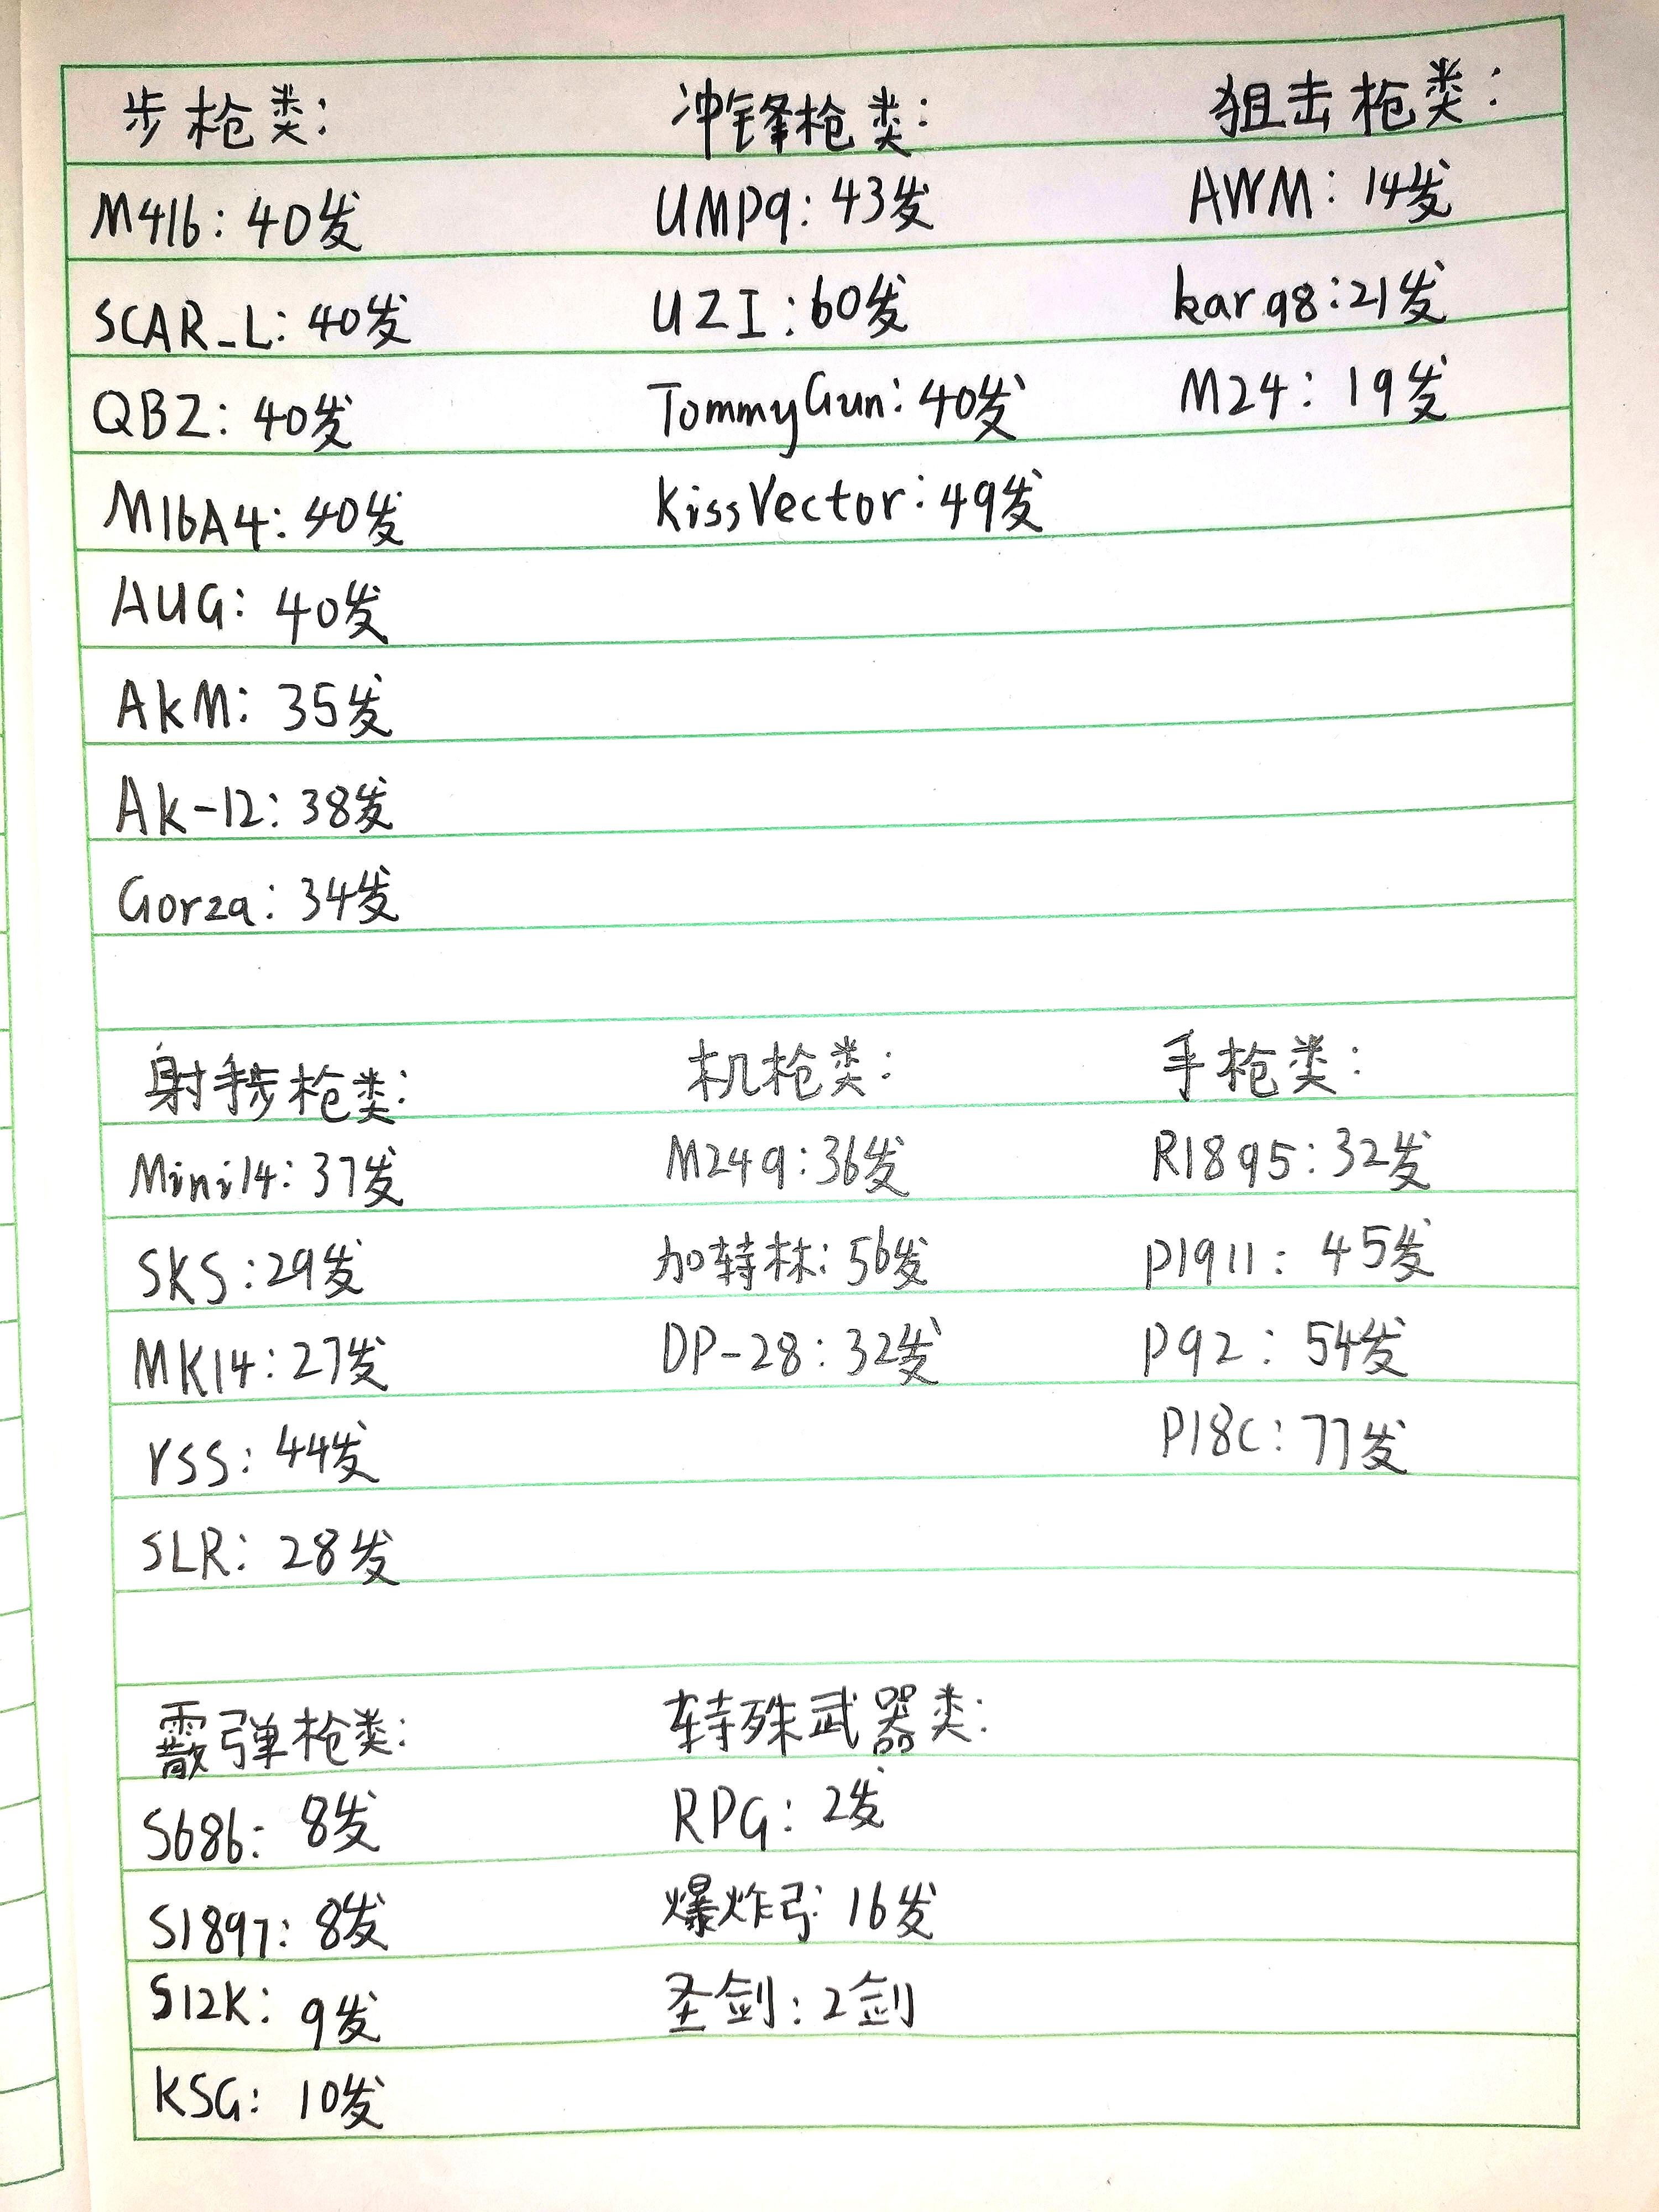 步枪类: 冲锋枪类: 狙击枪类:
M416: 40发 UMP9: 43发 AWM: 14发
SCAR_L: 40发 UZI: 60发 kar98: 21发
QBZ: 40发 TommyGun: 40发 M24: 19发
M16A4: 40发 KissVector: 49发
AUG: 40发
AkM: 35发
Ak-12: 38发
Gorza: 34发
射手步枪类: 机枪类: 手枪类:
Mini14: 37发 M249: 36发 R1895: 32发
SKS: 29发 加特林: 56发 P1911: 45发
MK14: 27发 DP-28: 32发 P92: 54发
VSS: 44发 P18C: 77发
SLR: 28发
霰弹枪类: 特殊武器类:
S686: 8发 RPG: 2发
S1897: 8发 爆炸弓: 16发
S12K: 9发 圣剑: 2剑
KSG: 10发